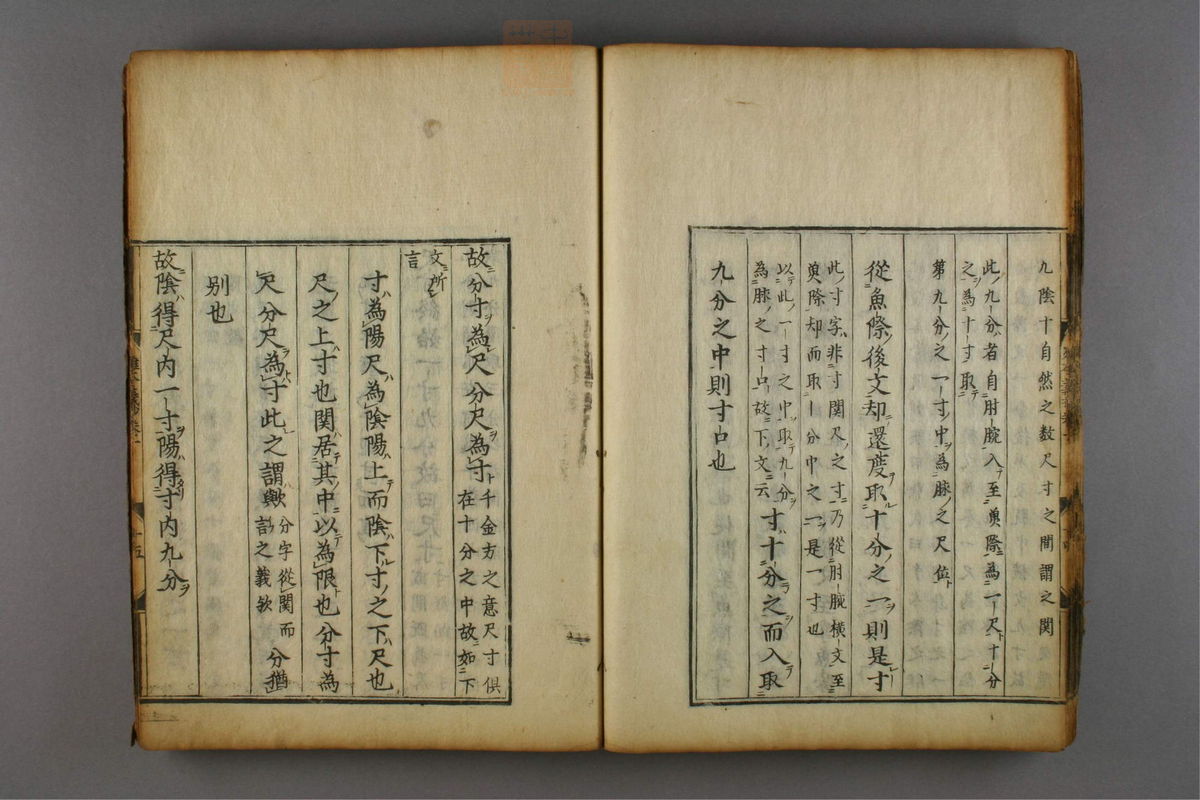 九陰十自然之数尺寸之間謂之関
此九分者自肘腕入至魚際為一尺十分
之為十寸取
第九分之一寸中為脉之尺位
從魚際後文却還度取十分之一則是寸
此寸字非寸関尺之寸乃從肘腕横文至
魚際却而取一分中之一是一寸也
以此一寸之中取九分
為脉之寸口故下文云
寸十分之而入取
九分之中則寸口也
故分寸為尺分尺為寸
千金方之意尺寸俱
在十分之中故如下
文所
言
寸為陽尺為陰陽上而陰下寸之下尺也
尺之上寸也関居其中以為限也分寸為
尺分尺為寸此之謂歟
分字從関而分猶
訣之義欤
別也
故陰得尺内一寸陽得寸内九分